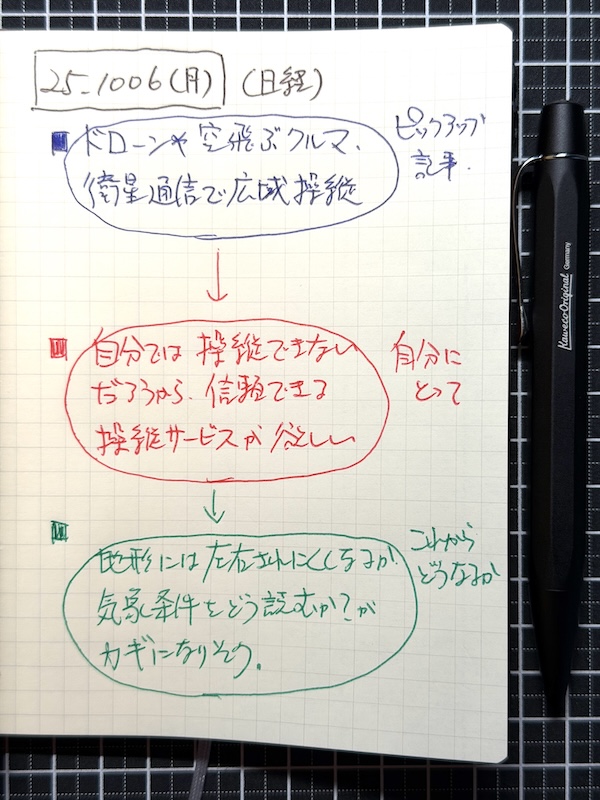 25-1006(月) (日経)
ドローンや空飛ぶクルマ、
衛星通信で広域操縦
ピックアップ
記事.
自分では操縦できない
だろうから、信頼できる
操縦サービスが欲しい
自分に
とって
地形には左右されにくくなるが、
気象条件をどう読むか?が
カギになりそう。
これから
どうなるか
Kaweco-Original Germany